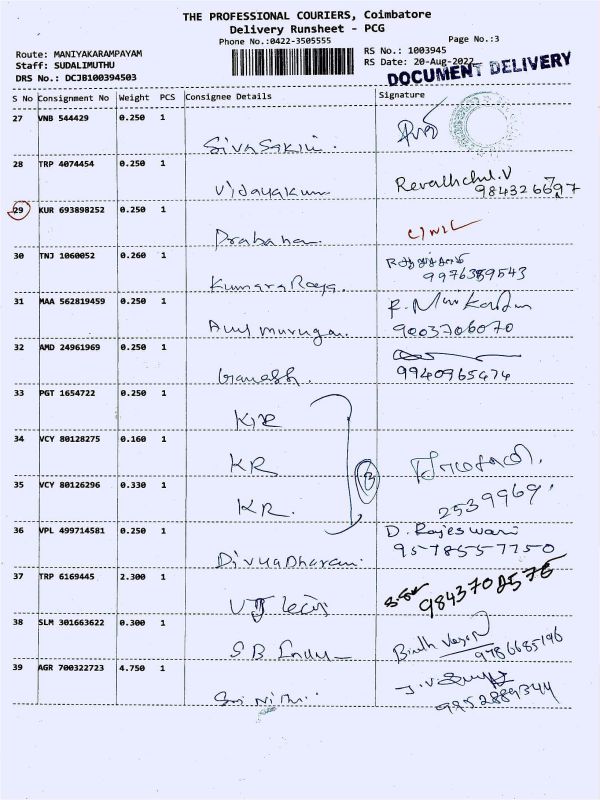 THE PROFESSIONAL COURIERS, Coimbatore
Delivery Runsheet - PCG
Phone No.:0422-3505555
Page No.:3
Route: MANIYAKARAMPAYAM
RS No.: 1003945
Staff: SUDALIMUTHU
RS Date: 20-Aug-2022
DRS No.: DCJB100394503
DOCUMENT DELIVERY
S No Consignment No Weight PCS Consignee Details Signature
27 VNB 544429 0.250 1
Sivasakthi.
28 TRP 4074454 0.250 1
Vijayakum Revathchl.V
29 KUR 693898252 0.250 1
Prabahar.
30 TNJ 1060052 0.260 1
Kumara Raja. 9976389543
31 MAA 562819459 0.250 1
Arulmurugan. 9003706070
32 AMD 24961969 0.250 1
Ganesh. 9940965474
33 PGT 1654722 0.250 1
KR
34 VCY 80128275 0.160 1
KR
35 VCY 80126296 0.330 1
KR. 2539969.
36 VPL 499714581 0.250 1 D. Rajeswari
Divyadharani 9578557750
37 TRP 6169445 2.300 1
9843702576
38 SLM 301663622 0.300 1
SB 9786685196
39 AGR 700322723 4.750 1
Sri Nithi 9952889344